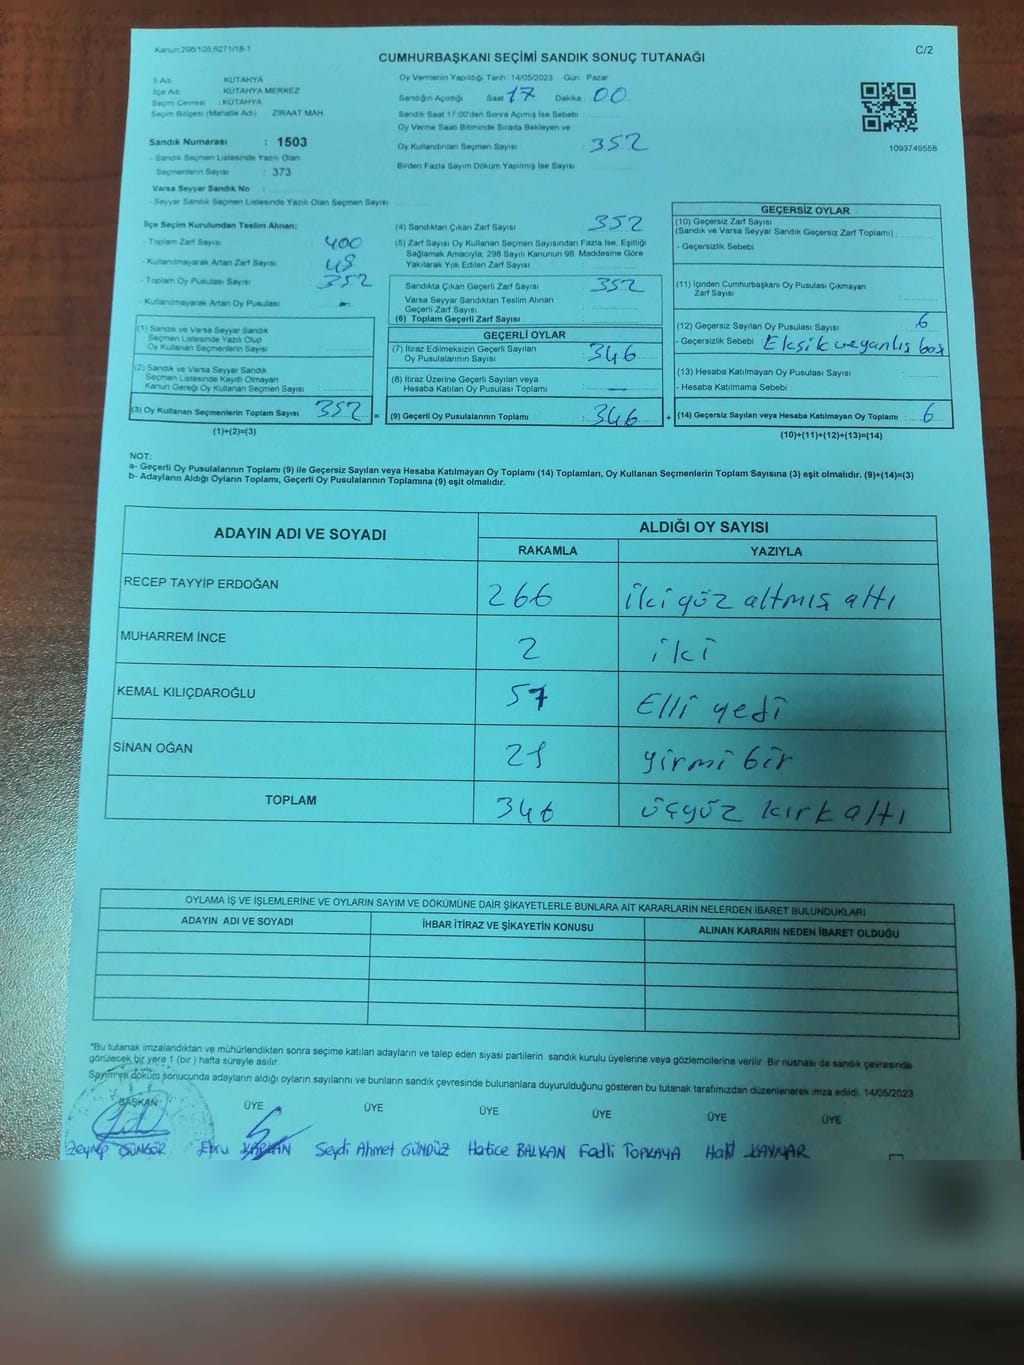 Kanun:298/105,6271/18-1
C/2
CUMHURBAŞKANI SEÇİMİ SANDIK SONUÇ TUTANAĞI
İl Adı : KÜTAHYA
İlçe Adı : KÜTAHYA MERKEZ
Seçim Çevresi : KÜTAHYA
Seçim Bölgesi (Mahalle Adı) ZİRAAT MAH
Sandık Numarası : 1503
- Sandık Seçmen Listesinde Yazılı Olan
Seçmenlerin Sayısı : 373
Varsa Seyyar Sandık No :
- Seyyar Sandık Seçmen Listesinde Yazılı Olan Seçmen Sayısı
Oy Vermenin Yapıldığı Tarih 14/05/2023 Gün Pazar
Sandığın Açıldığı Saat 17 Dakika : 00
Sandık Saat 17:00'den Sonra Açmış İse Sebebi
Oy Verme Saati Bitiminde Sırada Bekleyen ve
Oy Kullandırılan Seçmen Sayısı : 352
Birden Fazla Sayım Döküm Yapılmış İse Sayısı
1093749558
İlçe Seçim Kurulundan Teslim Alınan;
- Toplam Zarf Sayısı 400
- Kullanılmayarak Artan Zarf Sayısı 48
- Toplam Oy Pusulası Sayısı 352
- Kullanılmayarak Artan Oy Pusulası -
(1) Sandık ve Varsa Seyyar Sandık
Seçmen Listesinde Yazılı Olup
Oy Kullanan Seçmenlerin Sayısı
(2) Sandık ve Varsa Seyyar Sandık
Seçmen Listesinde Kayıtlı Olmayan
Kanun Gereği Oy Kullanan Seçmen Sayısı
(3) Oy Kullanan Seçmenlerin Toplam Sayısı 352 =
(1)+(2)=(3)
(4) Sandıktan Çıkan Zarf Sayısı 352
(5) Zarf Sayısı Oy Kullanan Seçmen Sayısından Fazla İse, Eşitliği
Sağlamak Amacıyla, 298 Sayılı Kanunun 98. Maddesine Göre
Yakılarak Yok Edilen Zarf Sayısı
Sandıkta Çıkan Geçerli Zarf Sayısı 352
Varsa Seyyar Sandıktan Teslim Alınan
Geçerli Zarf Sayısı
(6) Toplam Geçerli Zarf Sayısı
GEÇERLİ OYLAR
(7) İtiraz Edilmeksizin Geçerli Sayılan
Oy Pusulalarının Sayısı : 346
(8) İtiraz Üzerine Geçerli Sayılan veya
Hesaba Katılan Oy Pusulası Toplamı : —
(9) Geçerli Oy Pusulalarının Toplamı : 346 +
GEÇERSİZ OYLAR
(10) Geçersiz Zarf Sayısı
(Sandık ve Varsa Seyyar Sandık Geçersiz Zarf Toplamı) :
- Geçersizlik Sebebi
(11) İçinden Cumhurbaşkanı Oy Pusulası Çıkmayan
Zarf Sayısı
(12) Geçersiz Sayılan Oy Pusulası Sayısı : 6
- Geçersizlik Sebebi : Eksik ve yanlış boş
(13) Hesaba Katılmayan Oy Pusulası Sayısı :
- Hesaba Katılmama Sebebi :
(14) Geçersiz Sayılan veya Hesaba Katılmayan Oy Toplamı : 6
(10)+(11)+(12)+(13)=(14)
NOT:
a- Geçerli Oy Pusulalarının Toplamı (9) ile Geçersiz Sayılan veya Hesaba Katılmayan Oy Toplamı (14) Toplamları, Oy Kullanan Seçmenlerin Toplam Sayısına (3) eşit olmalıdır. (9)+(14)=(3)
b- Adayların Aldığı Oyların Toplamı, Geçerli Oy Pusulalarının Toplamına (9) eşit olmalıdır.
ADAYIN ADI VE SOYADI
ALDIĞI OY SAYISI
RAKAMLA YAZIYLA
RECEP TAYYİP ERDOĞAN 266 iki yüz altmış altı
MUHARREM İNCE 2 iki
KEMAL KILIÇDAROĞLU 57 Elli yedi
SİNAN OĞAN 21 yirmi bir
TOPLAM 346 üçyüz kırk altı
OYLAMA İŞ VE İŞLEMLERİNE VE OYLARIN SAYIM VE DÖKÜMÜNE DAİR ŞİKAYETLERLE BUNLARA AİT KARARLARIN NELERDEN İBARET BULUNDUKLARI
ADAYIN ADI VE SOYADI İHBAR İTİRAZ VE ŞİKAYETİN KONUSU ALINAN KARARIN NEDEN İBARET OLDUĞU
*Bu tutanak imzalandıktan ve mühürlendikten sonra seçime katılan adayların ve talep eden siyasi partilerin sandık kurulu üyelerine veya gözlemcilerine verilir. Bir nüshası da sandık çevresinde
görülecek bir yere 1 (bir ) hafta süreyle asılır.
Sayım ve döküm sonucunda adayların aldığı oyların sayılarını ve bunların sandık çevresinde bulunanlara duyurulduğunu gösteren bu tutanak tarafımızdan düzenlenerek imza edildi. 14/05/2023
BAŞKAN ÜYE ÜYE ÜYE ÜYE ÜYE ÜYE
Zeynep GÜNGÖR Ebru KAPLAN Seydi Ahmet GÜNDÜZ Hatice BALKAN Fadli TOPKAYA Halil KAYNAR